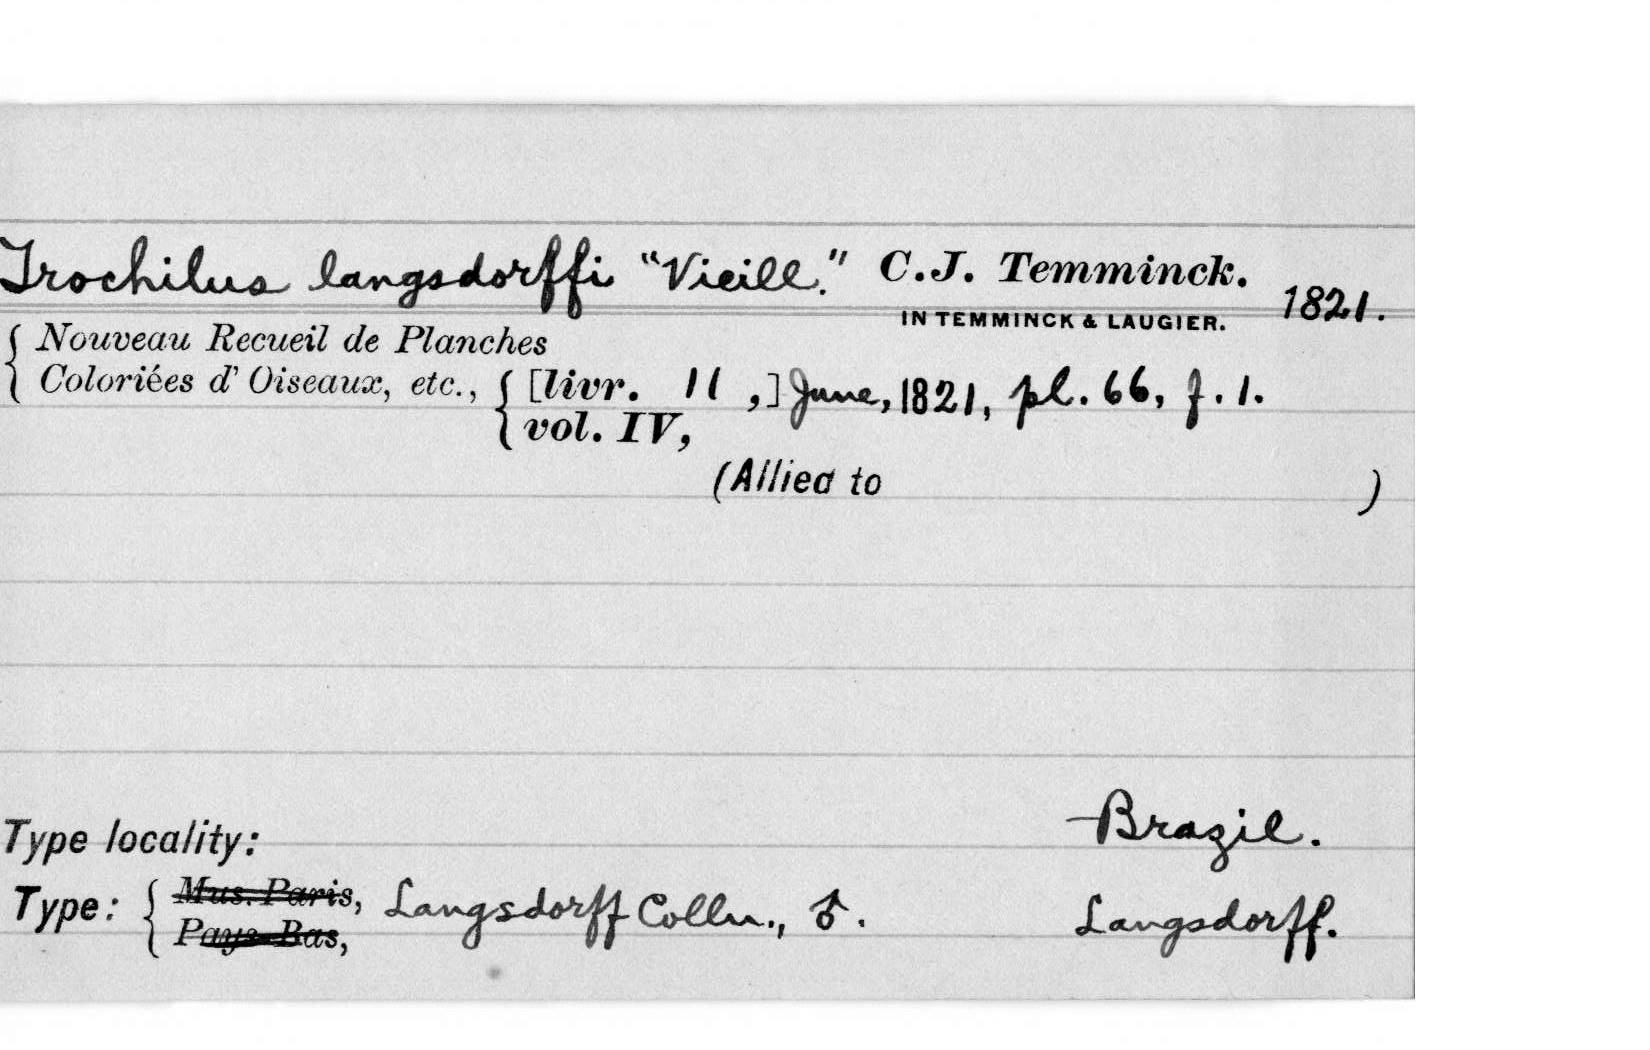 Trochilus langsdorffi "Vieill." C.J. Temminck. 1821.
IN TEMMINCK & LAUGIER.
Nouveau Recueil de Planches
Coloriées d'Oiseaux, etc., [livr. 11 ,] June, 1821, pl. 66, f. 1.
vol. IV,
(Allied to )
Type locality: Brazil.
Type: Mus. Paris, Langsdorff Colln., ♂. Langsdorff.
Pays-Bas,